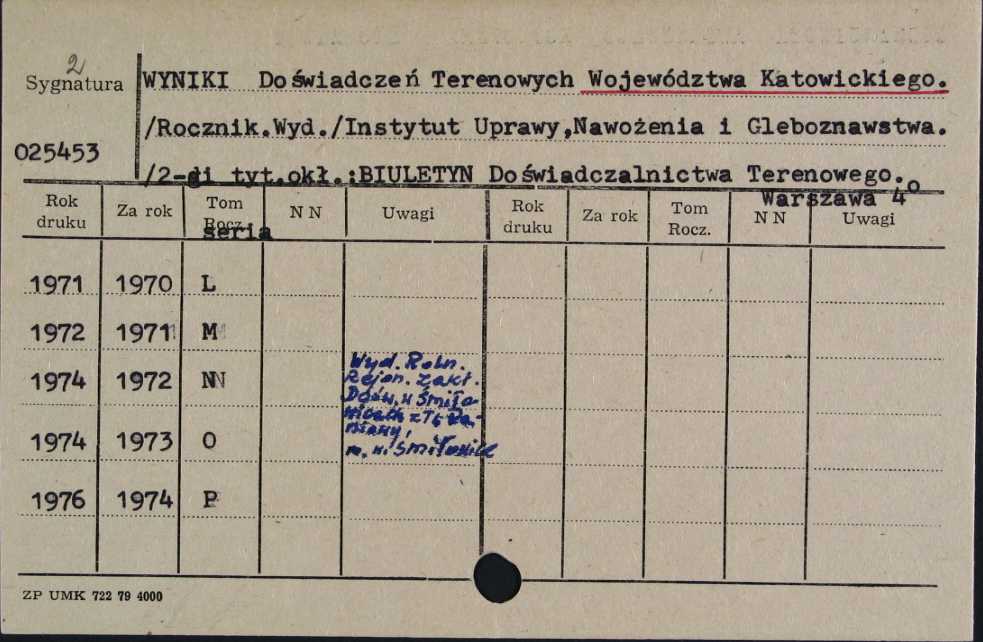 2
Sygnatura
WYNIKI Doświadczeń Terenowych Województwa Katowickiego.
/Rocznik.Wyd./Instytut Uprawy,Nawożenia i Gleboznawstwa.
025453
/2-gi tyt.okł.:BIULETYN Doświadczalnictwa Terenowego.
Warszawa 4°
Rok druku Za rok Tom Rocz. NN Uwagi Rok druku Za rok Tom Rocz. NN Uwagi
seria
1971 1970 L
1972 1971 M
1974 1972 N
Wyd. Roln.
Rejon. Zakł.
Dośw. w Śmiło-
wicach
1974 1973 O
1976 1974 P
ZP UMK 722 79 4000